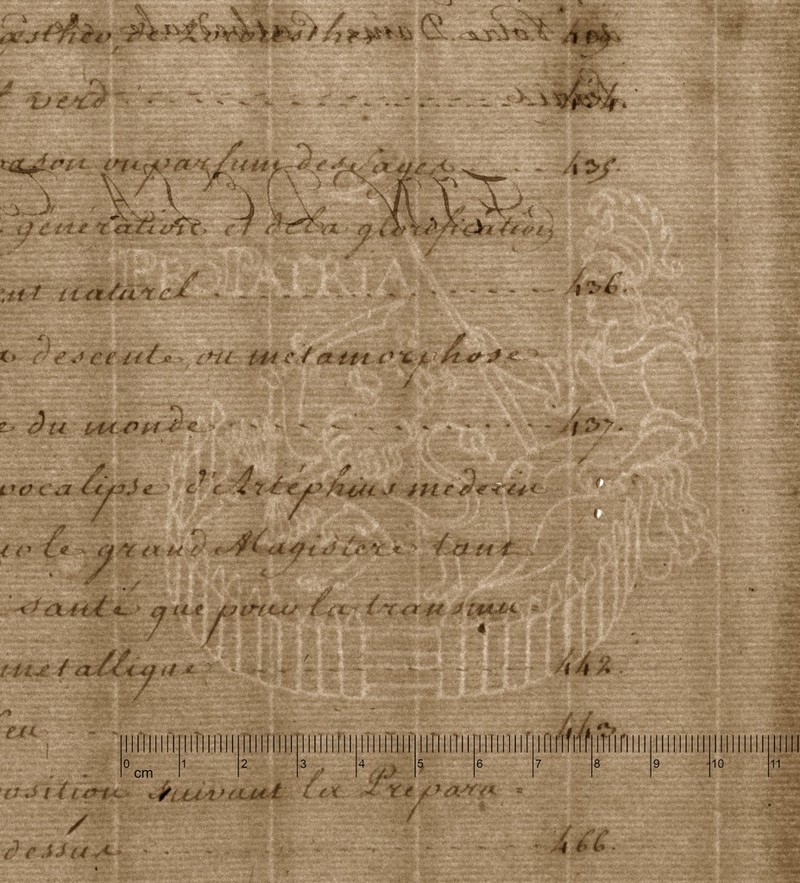 t verd 434.
ou parfum des sages 435.
génération et de la glorification
PRO PATRIA
ent naturel 436.
a descente, ou métamorphose
e du monde 437.
pocalipse d'Artéphius medecin
le grand Magistere tant
santé que pour la transmu =
metallique 442.
feu 443.
0 1 2 3 4 5 6 7 8 9 10 11
cm
position suivant la Prepara =
dessus 466.